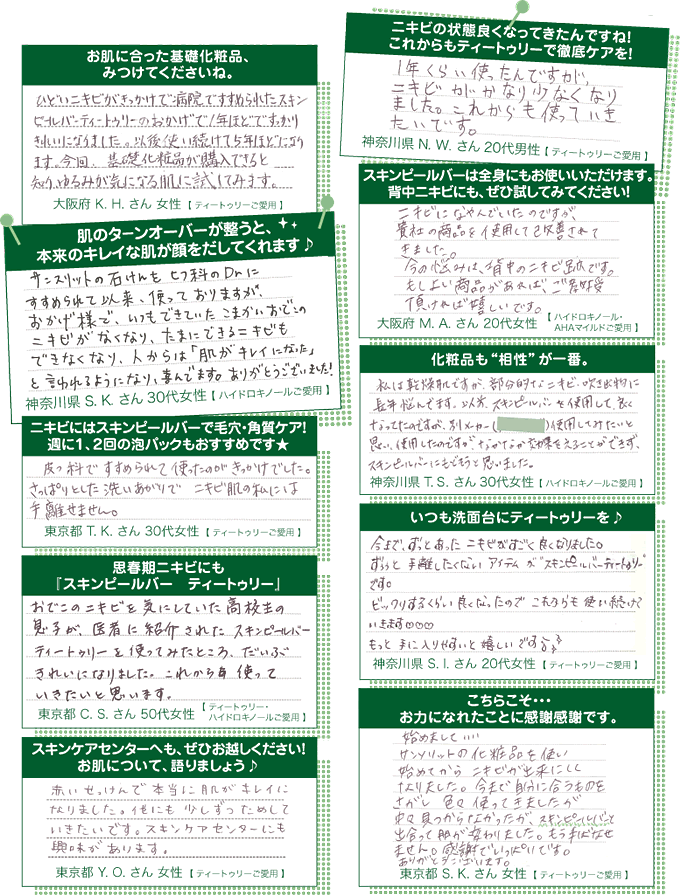 お肌に合った基礎化粧品、
みつけてくださいね。
ひどいニキビがきっかけで病院ですすめられたスキン
ピールバーティートゥリーのおかげで1年ほどですっかり
きれいになりました。以後使い続けて5年ほどになり
ます。今回、基礎化粧品が購入できると
知り、ゆるみが気になる肌に試してみます。
大阪府 K. H. さん 女性【 ティートゥリーご愛用 】
肌のターンオーバーが整うと、
本来のキレイな肌が顔をだしてくれます♪
サンスリットの石けんも ヒフ科のDr.に
すすめられて以来、使っておりますが、
おかげ様で、いつもできていた こまかいおでこの
ニキビがなくなり、たまにできるニキビも
できなくなり、人からは「肌がキレイになった」
と言われるようになり、喜んでます。ありがとうございました!
神奈川県 S. K. さん 30代女性【 ハイドロキノールご愛用 】
ニキビにはスキンピールバーで毛穴・角質ケア!
週に1、2回の泡パックもおすすめです★
皮フ科ですすめられて使ったのがきっかけでした。
さっぱりとした洗いあがりで ニキビ肌の私には
手離せません。
東京都 T. K. さん 30代女性【 ティートゥリーご愛用 】
思春期ニキビにも
『スキンピールバー ティートゥリー』
おでこのニキビを気にしていた高校生の
息子が、医者に紹介されたスキンピールバー
ティートゥリーを使ってみたところ、だいぶ
きれいになりました。これからも使って
いきたいと思います。
東京都 C. S. さん 50代女性【 ティートゥリー・
ハイドロキノールご愛用 】
スキンケアセンターへも、ぜひお越しください!
お肌について、語りましょう♪
赤いせっけんで本当に肌がキレイに
なりました。他にも少しずつためして
いきたいです。スキンケアセンターにも
興味があります。
東京都 Y. O. さん 女性【 ティートゥリーご愛用 】
ニキビの状態良くなってきたんですね!
これからもティートゥリーで徹底ケアを!
1年くらい使ったんですが、
ニキビがかなり少なくなり
ました。これからも使っていき
たいです。
神奈川県 N. W. さん 20代男性【 ティートゥリーご愛用 】
スキンピールバーは全身にもお使いいただけます。
背中ニキビにも、ぜひ試してみてください!
ニキビになやんでいたのですが、
貴社の商品を使用して改善されて
きました。
今の悩みは、背中のニキビ跡です。
もしよい商品があれば、ご紹介
頂ければ嬉しいです。
大阪府 M. A. さん 20代女性【 ハイドロキノール・
AHAマイルドご愛用 】
化粧品も“相性”が一番。
私は乾燥肌ですが、部分的なニキビ・吹き出物に
長年悩んでます。以前、スキンピールバーを使用して、良く
なってたのですが、別メーカー( )使用してみたいと
思い、使用したのですが、なかなか効果をえることができず、
スキンピールバーにもどそうと思いました。
神奈川県 T. S. さん 30代女性【 ハイドロキノールご愛用 】
いつも洗面台にティートゥリーを♪
今まで、ずっとあった ニキビがすごく良くなりました。
ずぅっと 手離したくない アイテム が“スキンピールバーティートゥリー”
です。
ビックリするくらい良くなったので これからも 使い続けて
いきます♡♡♡
もっと 手に入りやすいと嬉しいです
神奈川県 S. I. さん 20代女性【 ティートゥリーご愛用 】
こちらこそ・・・
お力になれたことに感謝感謝です。
始めまして・・・・
サンソリットの化粧品を使い
始めてから ニキビが出来にくく
なりました。今まで自分に合うものを
さがし 色々使ってきましたが
中々見つからなかったが、スキンピールバーと
出合って肌が変わりました。もう手ばなせ
ません。感謝でいっぱいです。
ありがとうございます。
東京都 S. K. さん 女性【 ティートゥリーご愛用 】